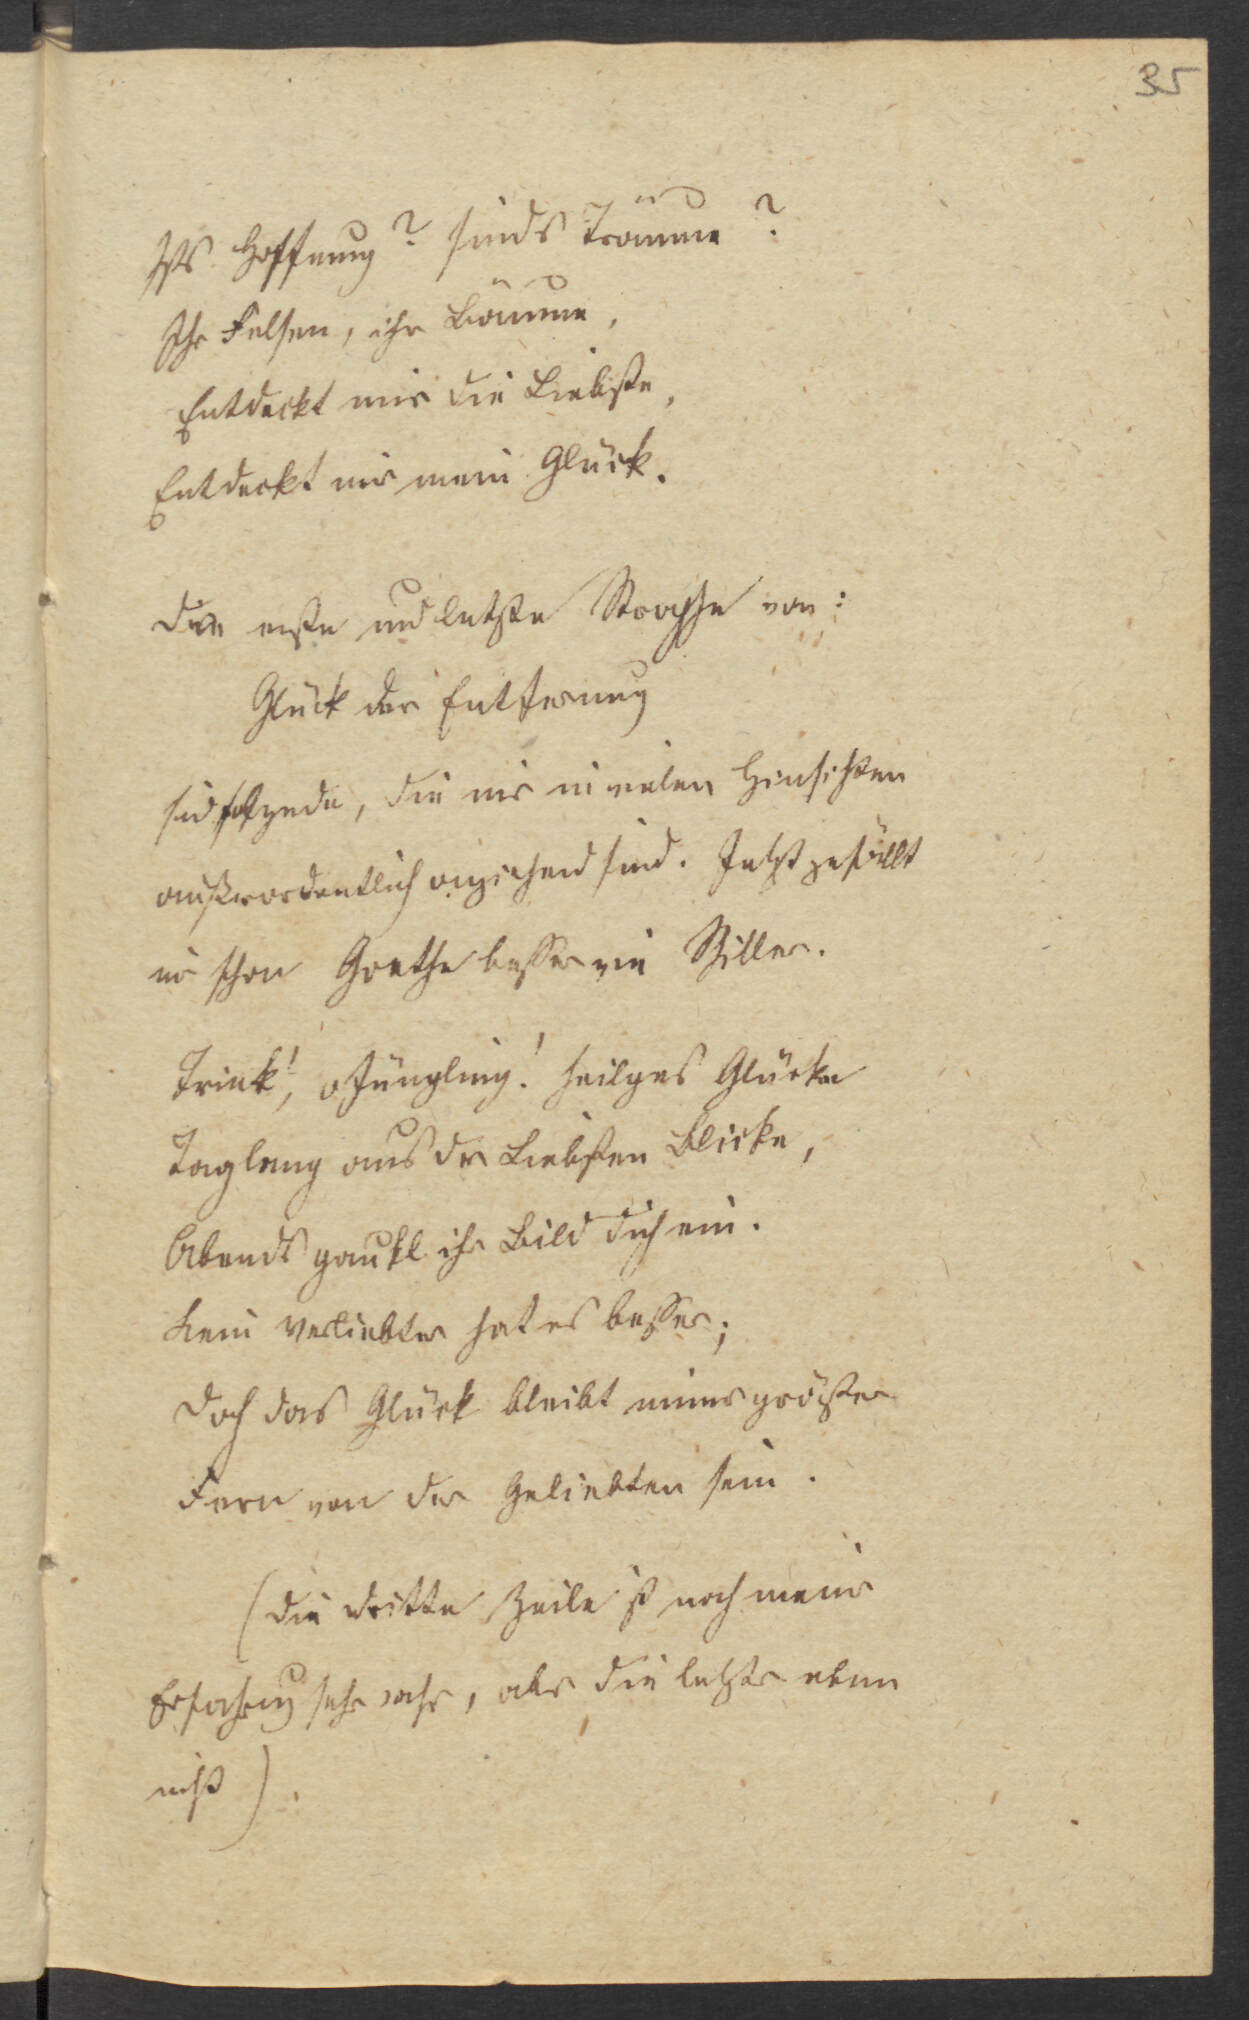 35
Ists Hoffnung? sinds Träume?
Ihr Felsen, ihr Bäume,
Entdeckt mir die Liebste,
Entdeckt mir mein Glück.
Die erste und letzte Strophe von:
Glück der Entfernung
sind folgende, die mir in vielen Hinsichten
außerordentlich anziehend sind. Jetzt gefällt
mir schon Goethe besser wie Schiller.
Trink!, o Jüngling! heilges Glücke
Taglang aus der Liebsten Blicke,
Abends gaukl ihr Bild dich ein.
Kein Verliebter hat es besser;
Doch das Glück bleibt immer größer
Fern von der Geliebten sein.
(Die dritte Zeile ist nach meiner
Erfahrung sehr wahr, aber die letzte eben
nicht).